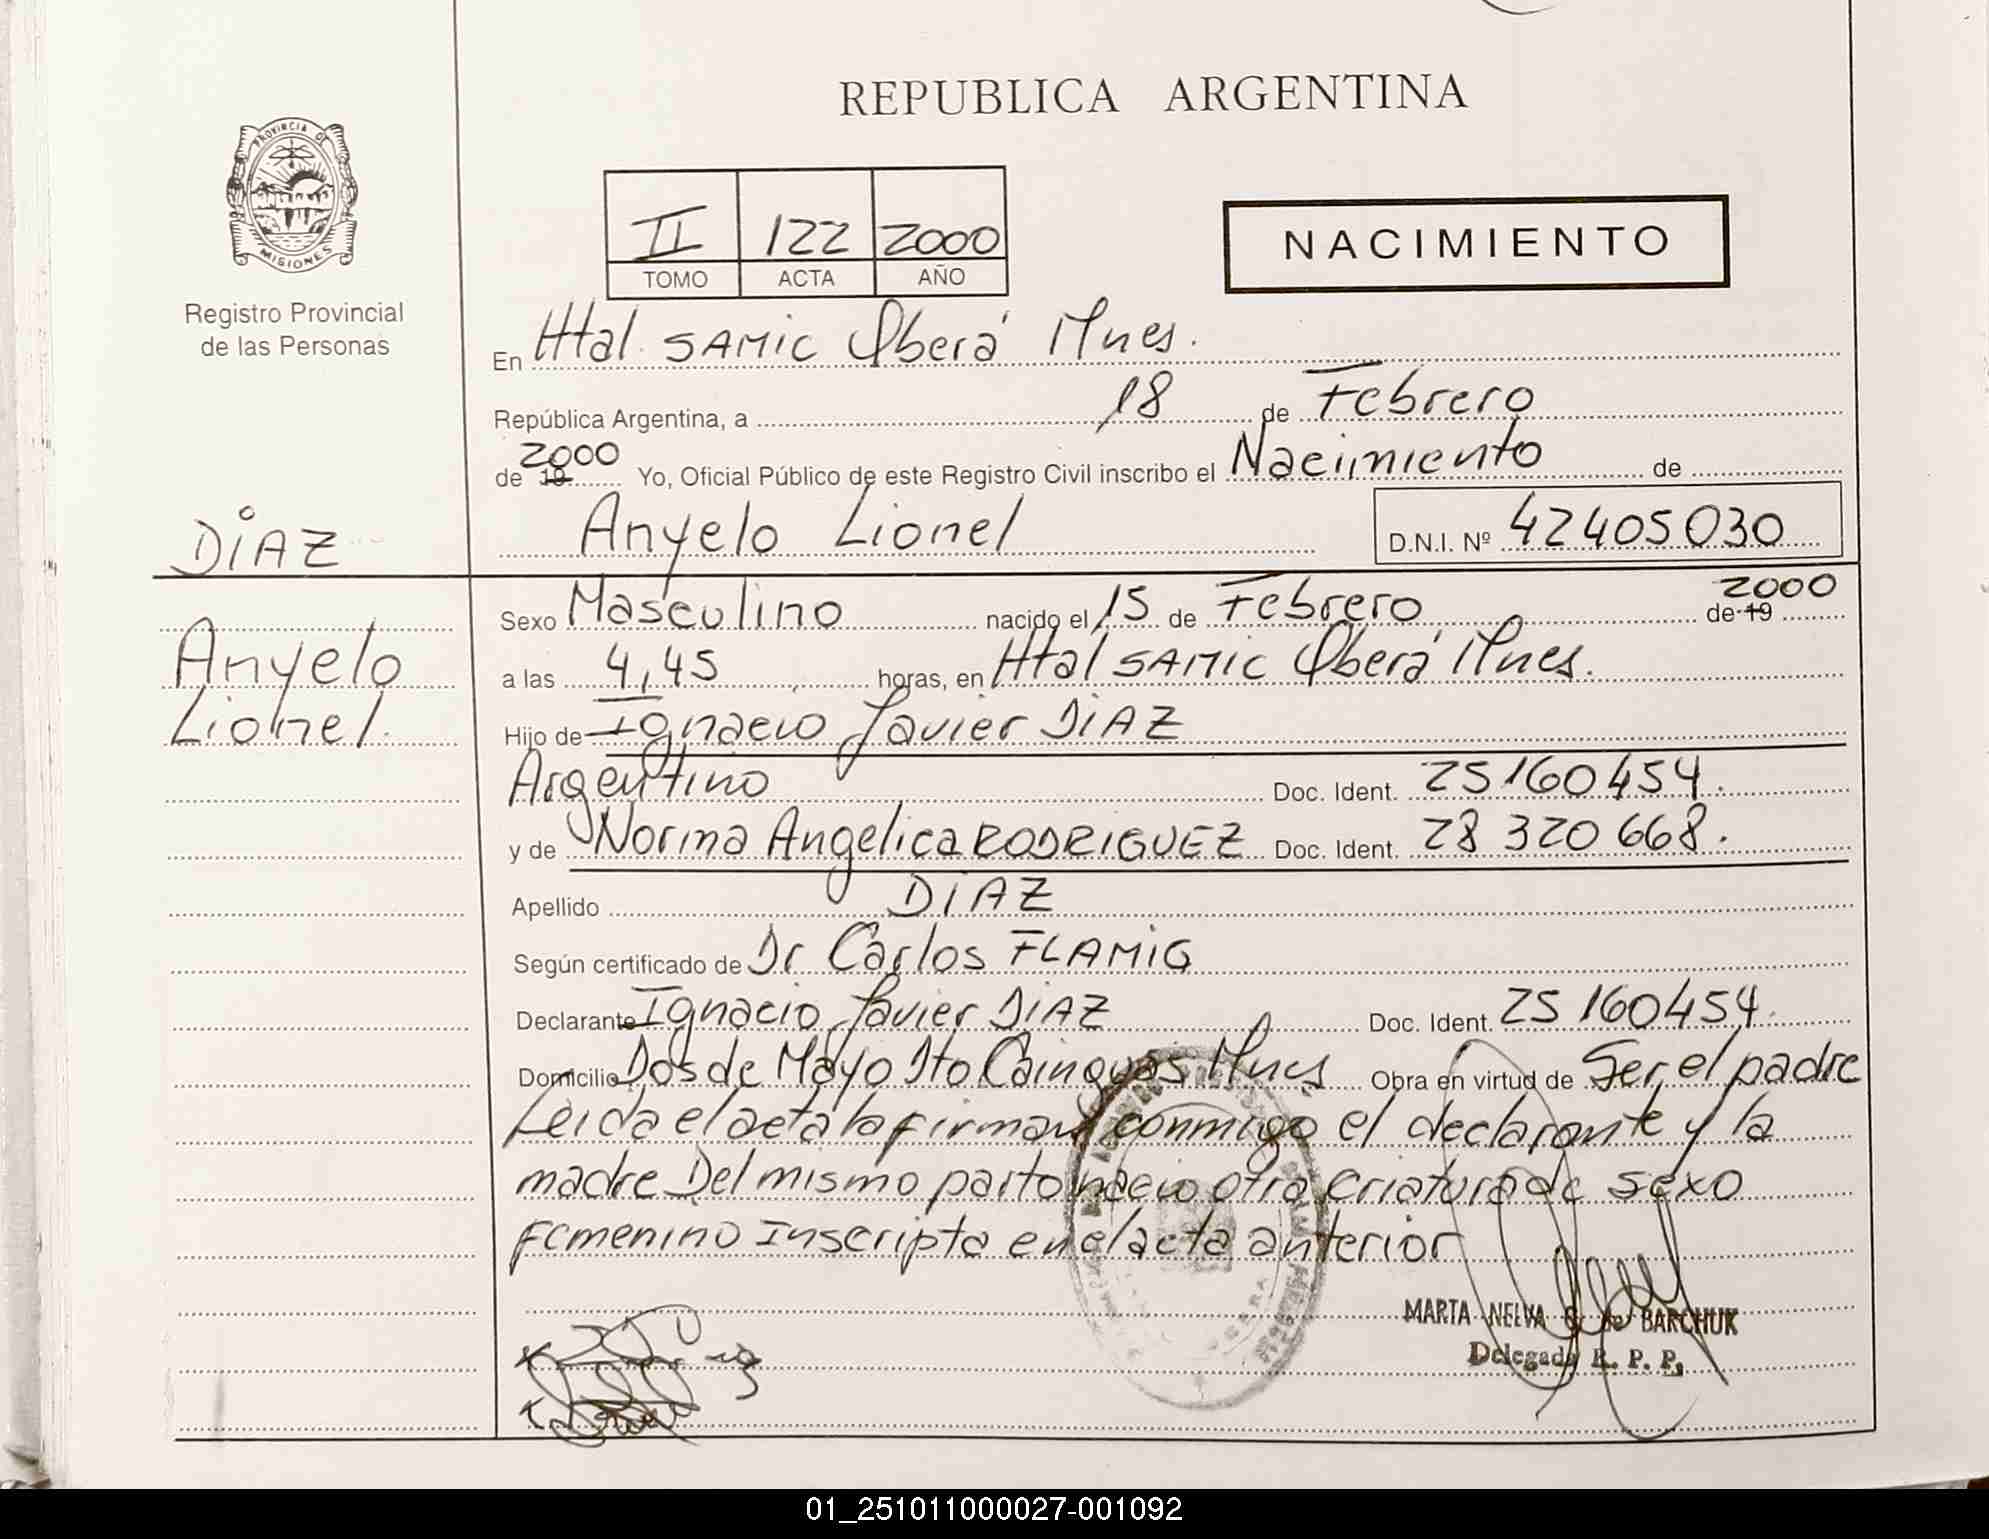 REPUBLICA ARGENTINA
PROVINCIA DE
MISIONES
Registro Provincial
de las Personas
II 122 2000
TOMO ACTA AÑO
NACIMIENTO
En Htal. SAMIC Oberá Mnes.
República Argentina, a 18 de Febrero
de 19 2000 Yo, Oficial Público de este Registro Civil inscribo el Nacimiento de
DIAZ
Anyelo Lionel D.N.I. Nº 42405030
Anyelo
Lionel.
Sexo Masculino nacido el 15 de Febrero de 19 2000
a las 4,45 horas, en Htal SAMIC Oberá Mnes.
Hijo de Ignacio Javier DIAZ
Argentino Doc. Ident. 25160454.
y de Norma Angelica RODRIGUEZ Doc. Ident. 28 320 668.
Apellido DIAZ
Según certificado de Dr Carlos FLAMIG
Declarante Ignacio Javier DIAZ Doc. Ident. 25 160454.
Domicilio Dos de Mayo Dto Cainguás Mnes Obra en virtud de Ser el padre
Leida el acta la firman conmigo el declarante y la
madre Del mismo parto nacio otra criatura de sexo
Femenino Inscripta en el acta anterior
MARTA NELVA de BARCHUK
Delegada R. P. P.
01_251011000027-001092